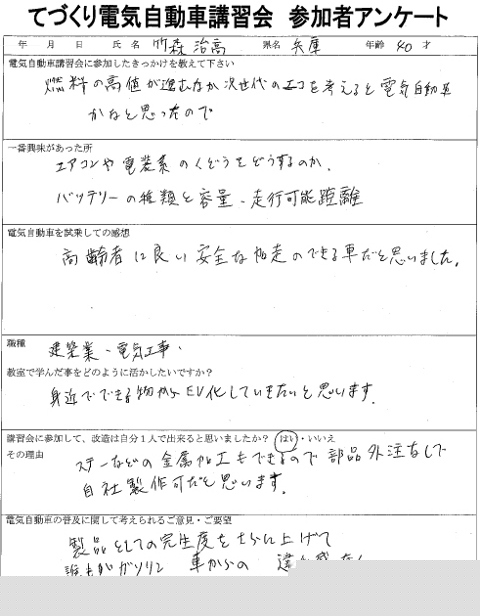 てづくり電気自動車講習会 参加者アンケート
年 月 日 氏 名 竹森 治高 県名 兵庫 年齢 40 才
電気自動車講習会に参加したきっかけを教えて下さい
燃料の高値が進むなか次世代のエコを考えると電気自動車
かなと思ったので
一番興味があった所
エアコンや電装系のくどうをどうするのか、
バッテリーの種類と容量、走行可能距離
電気自動車を試乗しての感想
高齢者に良い安全な 走のできる車だと思いました。
職種
建築業・電気工事・
教室で学んだ事をどのように活かしたいですか？
身近でできる物からEV化していきたいと思います。
講習会に参加して、改造は自分１人で出来ると思いましたか？ はい・いいえ
その理由
ステーなどの金属加工もできるので部品外注なしで
自社製作可だと思います。
電気自動車の普及に関して考えられるご意見・ご要望
製品としての完成度をさらに上げて
誰もがガソリン 車からの